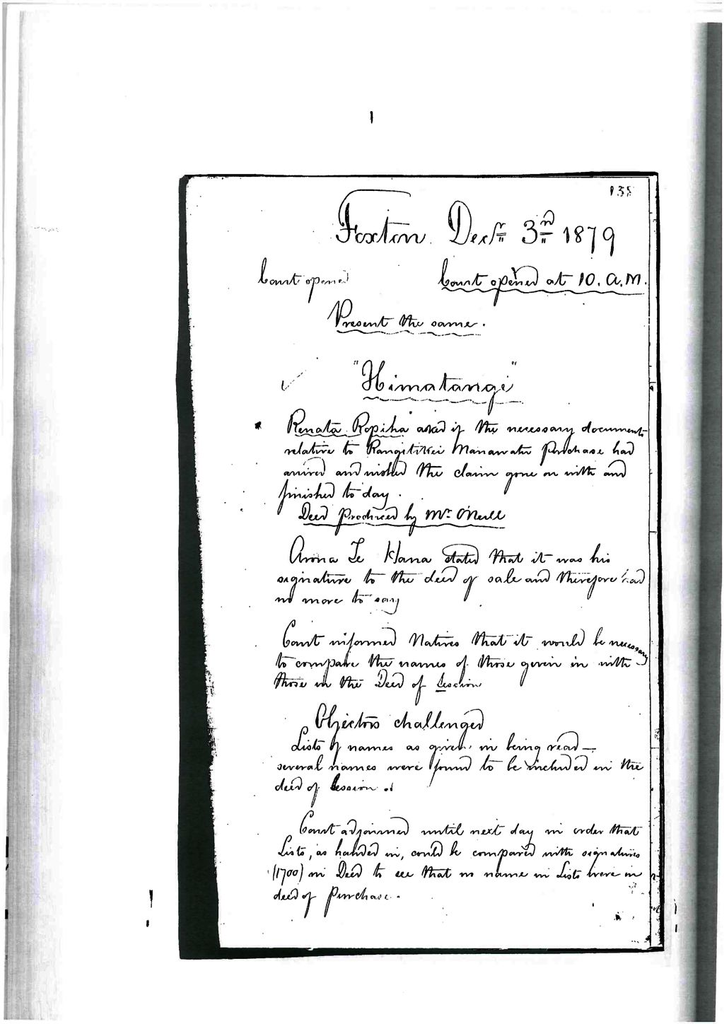 1
138
Foxton Decr 3rd 1879
Court opened Court opened at 10. a.m.
Present the same.
"Himatangi"
Renata Ropiha asked if the necessary documents
relative to Rangitikei Manawatu Purchase had
arrived and wished the claim gone on with and
finished to day.
Deed produced by Mr O'Neill
Te Hana stated that it was his
signature to the deed of sale and therefore had
no more to say
Court informed Natives that it would be necessary
to compare the names of those given in with
those in the Deed of Cession
Objectors challenged
Lists of names as given in being read —
several names were found to be included in the
deed of Cession.
Court adjourned until next day in order that
Lists, as handed in, could be compared with signatures
(1700) in Deed to see that no name in Lists were in
deed of Purchase.